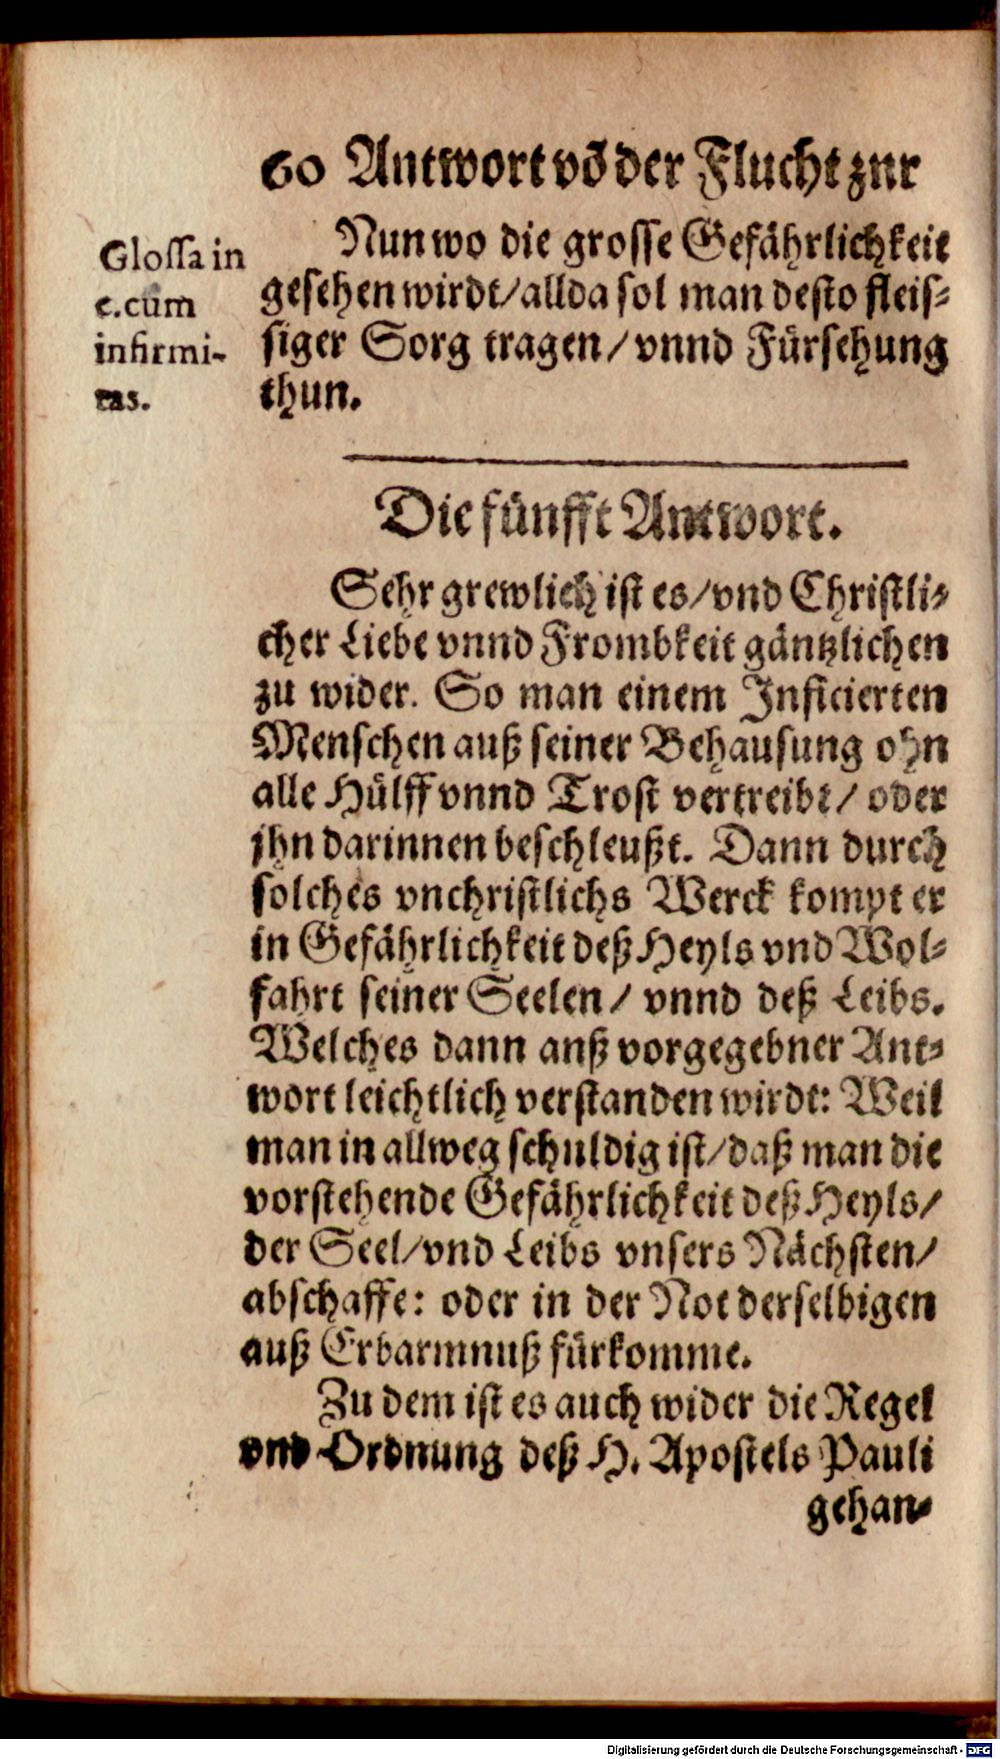 60 Antwort võ der Flucht znr
Glossa in
c. cum
infirmi-
tas.
Nun wo die grosse Gefährlichkeit
gesehen wirdt/allda sol man desto fleis-
siger Sorg tragen/ vnnd Fürsehung
thun.
Die fünfft Antwort.
Sehr grewlich ist es/vnd Christli-
cher Liebe vnnd Frombkeit gäntzlichen
zu wider. So man einem Inficierten
Menschen auß seiner Behausung ohn
alle Hülff vnnd Trost vertreibt/ oder
jhn darinnen beschleußt. Dann durch
solches vnchristlichs Werck kompt er
in Gefährlichkeit deß Heyls vnd Wol-
fahrt seiner Seelen/ vnnd deß Leibs.
Welches dann anß vorgegebner Ant-
wort leichtlich verstanden wirdt: Weil
man in allweg schuldig ist/daß man die
vorstehende Gefährlichkeit deß Heyls/
der Seel/vnd Leibs vnsers Nächsten/
abschaffe: oder in der Not derselbigen
auß Erbarmnuß fürkomme.
Zu dem ist es auch wider die Regel
vnd Ordnung deß H. Apostels Pauli
gehan-
Digitalisierung gefördert durch die Deutsche Forschungsgemeinschaft - DFG